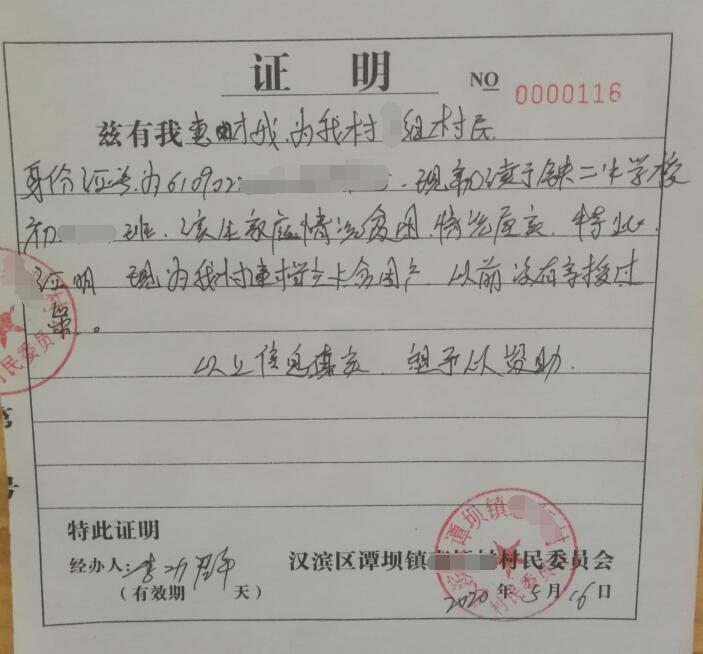 证 明 NO 0000116
兹有我 为我村 组村民
身份证号为610922 现就读于铁二中学校
初 班. 该生家庭情况贫困. 情况属实. 特此
证明 现为我村建档立卡贫困户. 以前没有享受过
以上信息真实. 望予以资助.
特此证明
经办人:
汉滨区谭坝镇 村民委员会
(有效期 天)
2020年5月16日
谭坝镇
村民委员
村民委员